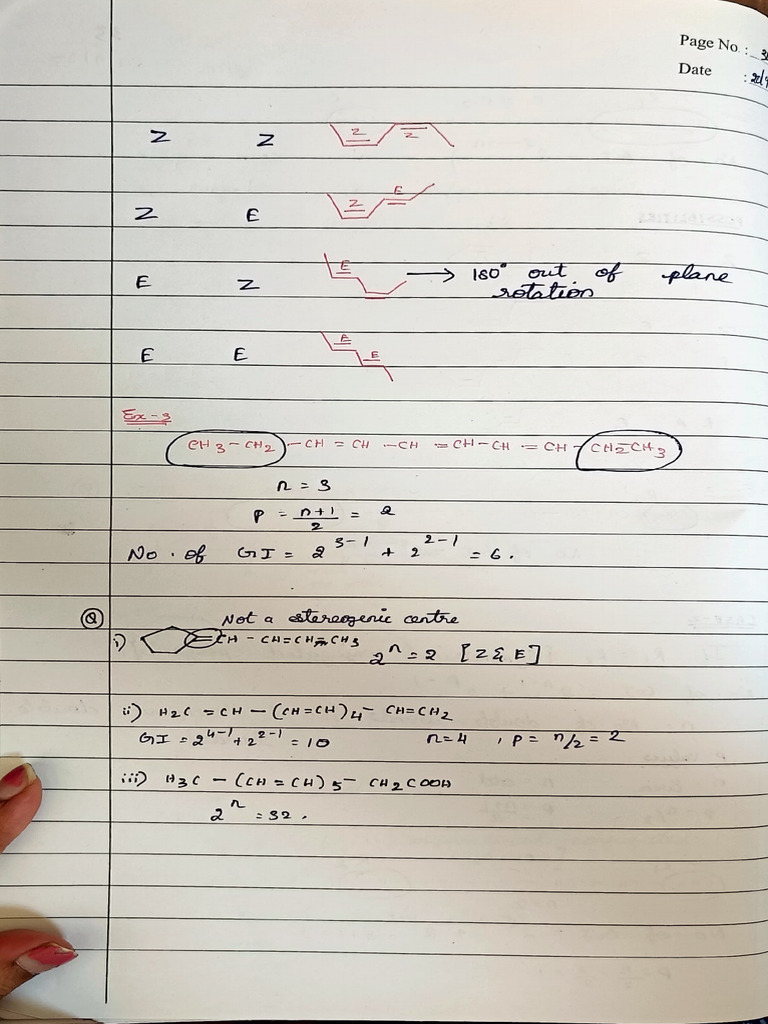 Page No. :
Date :
Z Z Z Z
Z E Z E
E Z E → 180° out of plane
rotation
E E E E
Ex-3
CH3-CH2-CH=CH-CH=CH-CH=CH-CH2-CH3
n = 3
p = n+1/2 = 2
No. of GI = 2^3-1 + 2^2-1 = 6.
Q Not a stereogenic centre
i) =CH-CH=CH-CH3
2^n = 2 [Z & E]
ii) H2C=CH-(CH=CH)4-CH=CH2
GI = 2^4-1 + 2^2-1 = 10 n=4, p = n/2 = 2
iii) H3C-(CH=CH)5-CH2COOH
2^n = 32.